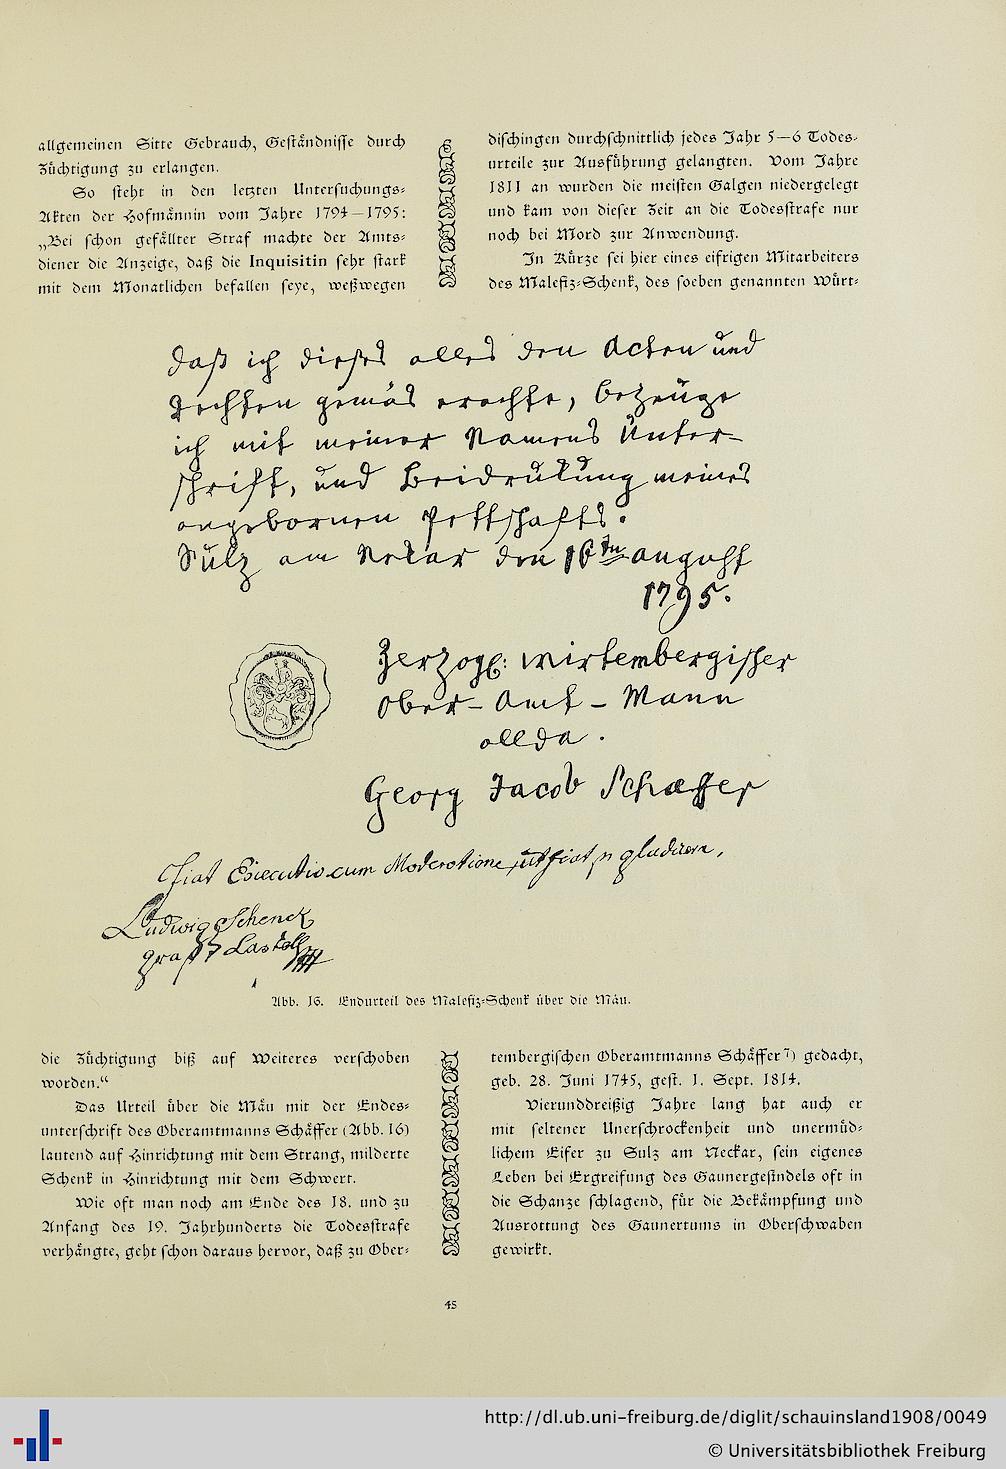 allgemeinen Sitte Gebrauch, Geständnisse durch
Züchtigung zu erlangen.
So steht in den letzten Untersuchungs-
Akten der Hofmännin vom Jahre 1794–1795:
„Bei schon gefällter Straf machte der Amts-
diener die Anzeige, daß die Inquisitin sehr stark
mit dem Monatlichen befallen seye, weßwegen
dischingen durchschnittlich jedes Jahr 5–6 Todes-
urteile zur Ausführung gelangten. Vom Jahre
1811 an wurden die meisten Galgen niedergelegt
und kam von dieser Zeit an die Todesstrafe nur
noch bei Mord zur Anwendung.
In Kürze sei hier eines eifrigen Mitarbeiters
des Malefiz-Schenk, des soeben genannten Würt-
daß ich dieses alles den Acten und
Rechten gemäs erachte, bezeuge
ich mit meiner Namens Unter-
schrift, und Beidrukung meines
angebornen Pettschafts.
Sulz am Nekar den 16ten august
1795.
Herzogl: wirtembergischer
Ober-Amt-Mann
allda.
Georg Jacob Schæffer
Fiat Executio cum Moderatione, ut fiat p gladium,
Ludwig Schenck
graf v Castell
Abb. 16. Endurteil des Malefiz-Schenk über die Mäu.
die Züchtigung biß auf Weiteres verschoben
worden.“
Das Urteil über die Mäu mit der Endes-
unterschrift des Oberamtmanns Schäffer (Abb. 16)
lautend auf Hinrichtung mit dem Strang, milderte
Schenk in Hinrichtung mit dem Schwert.
Wie oft man noch am Ende des 18. und zu
Anfang des 19. Jahrhunderts die Todesstrafe
verhängte, geht schon daraus hervor, daß zu Ober-
tembergischen Oberamtmanns Schäffer⁷) gedacht,
geb. 28. Juni 1745, gest. 1. Sept. 1814.
Vierunddreißig Jahre lang hat auch er
mit seltener Unerschrockenheit und unermüd-
lichem Eifer zu Sulz am Neckar, sein eigenes
Leben bei Ergreifung des Gaunergesindels oft in
die Schanze schlagend, für die Bekämpfung und
Ausrottung des Gaunertums in Oberschwaben
gewirkt.
45
http://dl.ub.uni-freiburg.de/diglit/schauinsland1908/0049
© Universitätsbibliothek Freiburg